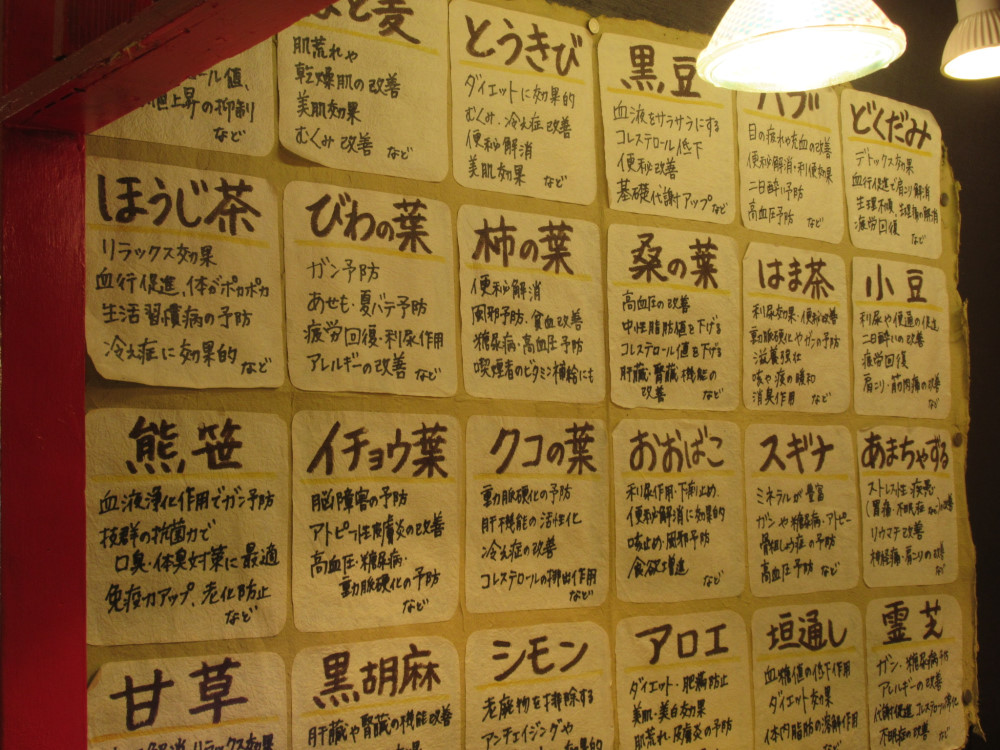 ール値、
値上昇の抑制
など
はと麦
肌荒れや
乾燥肌の改善
美肌効果
むくみ改善 など
とうきび
ダイエットに効果的
むくみ、冷え症改善
便秘解消
美肌効果 など
黒豆
血液をサラサラにする
コレステロール低下
便秘改善
基礎代謝アップなど
ハブ
目の疲れや充血の改善
便秘解消・利便効果
二日酔い予防
高血圧予防 など
どくだみ
デトックス効果
血行促進で肩こり解消
生理不順、生理痛の解消
疲労回復
など
ほうじ茶
リラックス効果
血行促進、体がポカポカ
生活習慣病の予防
冷え症に効果的 など
びわの葉
ガン予防
あせも・夏バテ予防
疲労回復・利尿作用
アレルギーの改善 など
柿の葉
便秘解消
風邪予防、貧血改善
糖尿病・高血圧予防
喫煙者のビタミン補給にも
桑の葉
高血圧の改善
中性脂肪値を下げる
コレステロール値を下げる
肝臓・腎臓機能の
改善 など
はま茶
利尿効果・便秘改善
動脈硬化やガンの予防
滋養強壮
咳や痰の緩和
消臭作用 など
小豆
利尿や便通の促進
二日酔いの改善
疲労回復
肩こり・筋肉痛の改善
など
熊笹
血液浄化作用でガン予防
抜群の抗菌力で
口臭・体臭対策に最適
免疫力アップ、老化防止
など
イチョウ葉
脳障害の予防
アトピー性皮膚炎の改善
高血圧・糖尿病・
動脈硬化の予防
など
クコの葉
動脈硬化の予防
肝機能の活性化
冷え症の改善
コレステロールの排出作用
など
おおばこ
利尿作用・下痢止め、
便秘解消に効果的
咳止め・風邪予防
食欲増進
など
スギナ
ミネラルが豊富
ガンや糖尿病・アトピー
骨粗しょう症の予防
高血圧予防 など
あまちゃずる
ストレス性疾患
(胃痛・不眠症など)の改善
リウマチ改善
神経痛・肩こりの改善
など
甘草
リラックス効果
黒胡麻
肝臓や腎臓の機能改善
シモン
老廃物を排除する
アンチエイジングや
アロエ
ダイエット・肥満防止
美肌・美白効果
肌荒れ・皮膚炎の予防
垣通し
血糖値の低下作用
ダイエット効果
体内脂肪の溶解作用
など
霊芝
ガン・糖尿病予防
アレルギーの改善
不眠症の改善 など